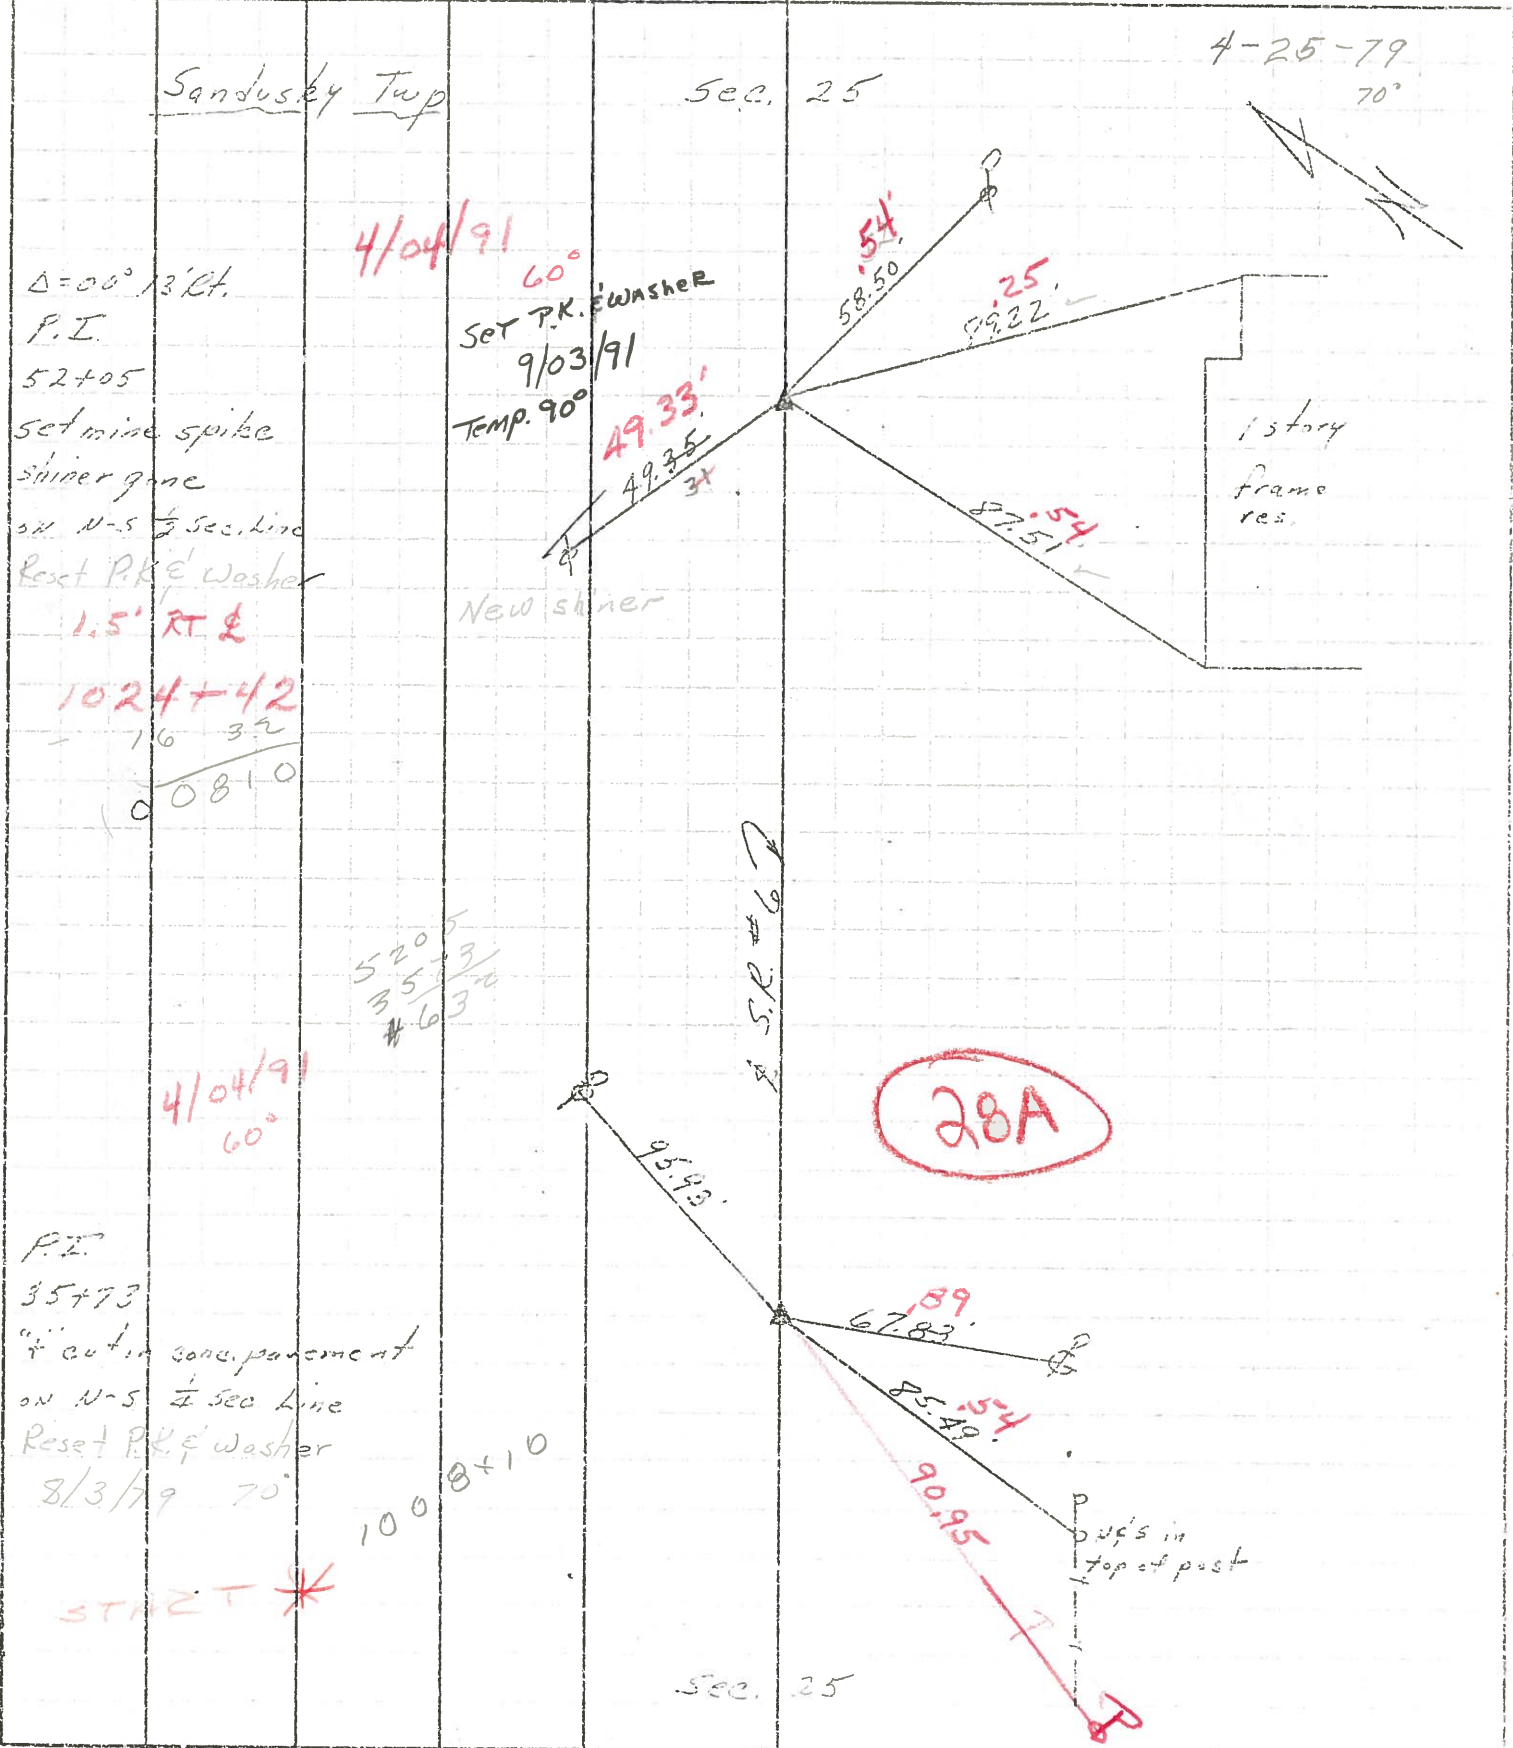 4-25-79
70°
Sandusky Twp
Sec. 25
4/04/91
60°
Set P.K. & Washer
9/03/91
Temp. 90°
Δ=00°13' Rt.
P.I.
52+05
set mine spike
shiner gone
on N-S ½ Sec. Line
Reset P.K. & Washer
1.5' RT ℄
1024+42
- 16 32
0 0810
.54'
58.50
.25
99.22
49.33'
49.35
34
New shiner
.54
87.51
1 story
frame
res.
5205
3573
1632
℄ S.R. #6
4/04/91
60°
28A
95.93'
P.I.
35+73
"+" cut in conc. pavement
on N-S ¼ Sec Line
Reset P.K. & Washer
8/3/79 70°
1008+10
START *
.89
67.83'
.54
85.49'
90.95
N&S in
top of post
Sec. 25